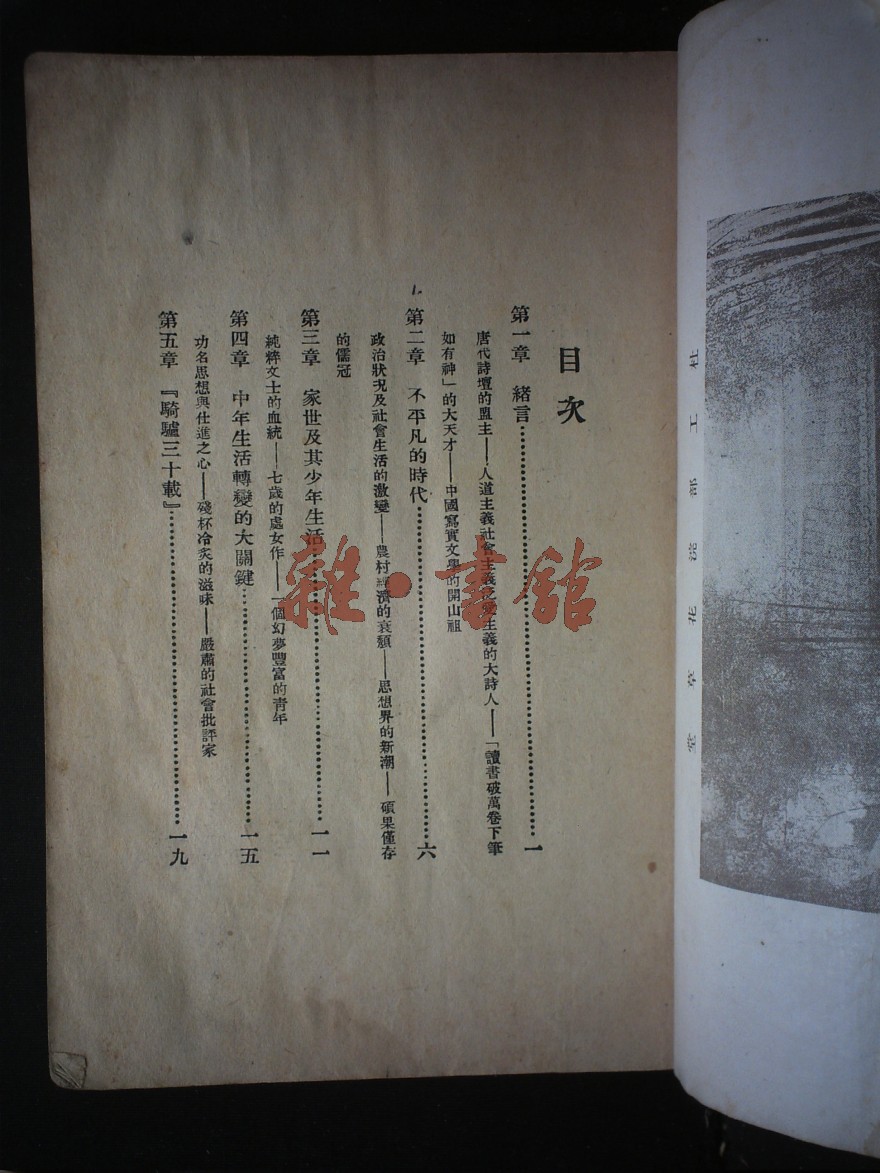 目次
第一章 緒言……一
唐代詩壇的盟主——人道主義社會主義泛愛主義的大詩人——「讀書破萬卷下筆
如有神」的大天才——中國寫實文學的開山祖
第二章 不平凡的時代……六
政治狀況及社會生活的激變——農村經濟的衰頹——思想界的新潮——碩果僅存
的儒冠
第三章 家世及其少年生活……一一
純粹文士的血統——七歲的處女作——一個幻夢豐富的青年
第四章 中年生活轉變的大關鍵……一五
功名思想與仕進之心——殘杯冷炙的滋味——嚴肅的社會批評家
第五章 『騎驢三十載』……一九
雜·書館